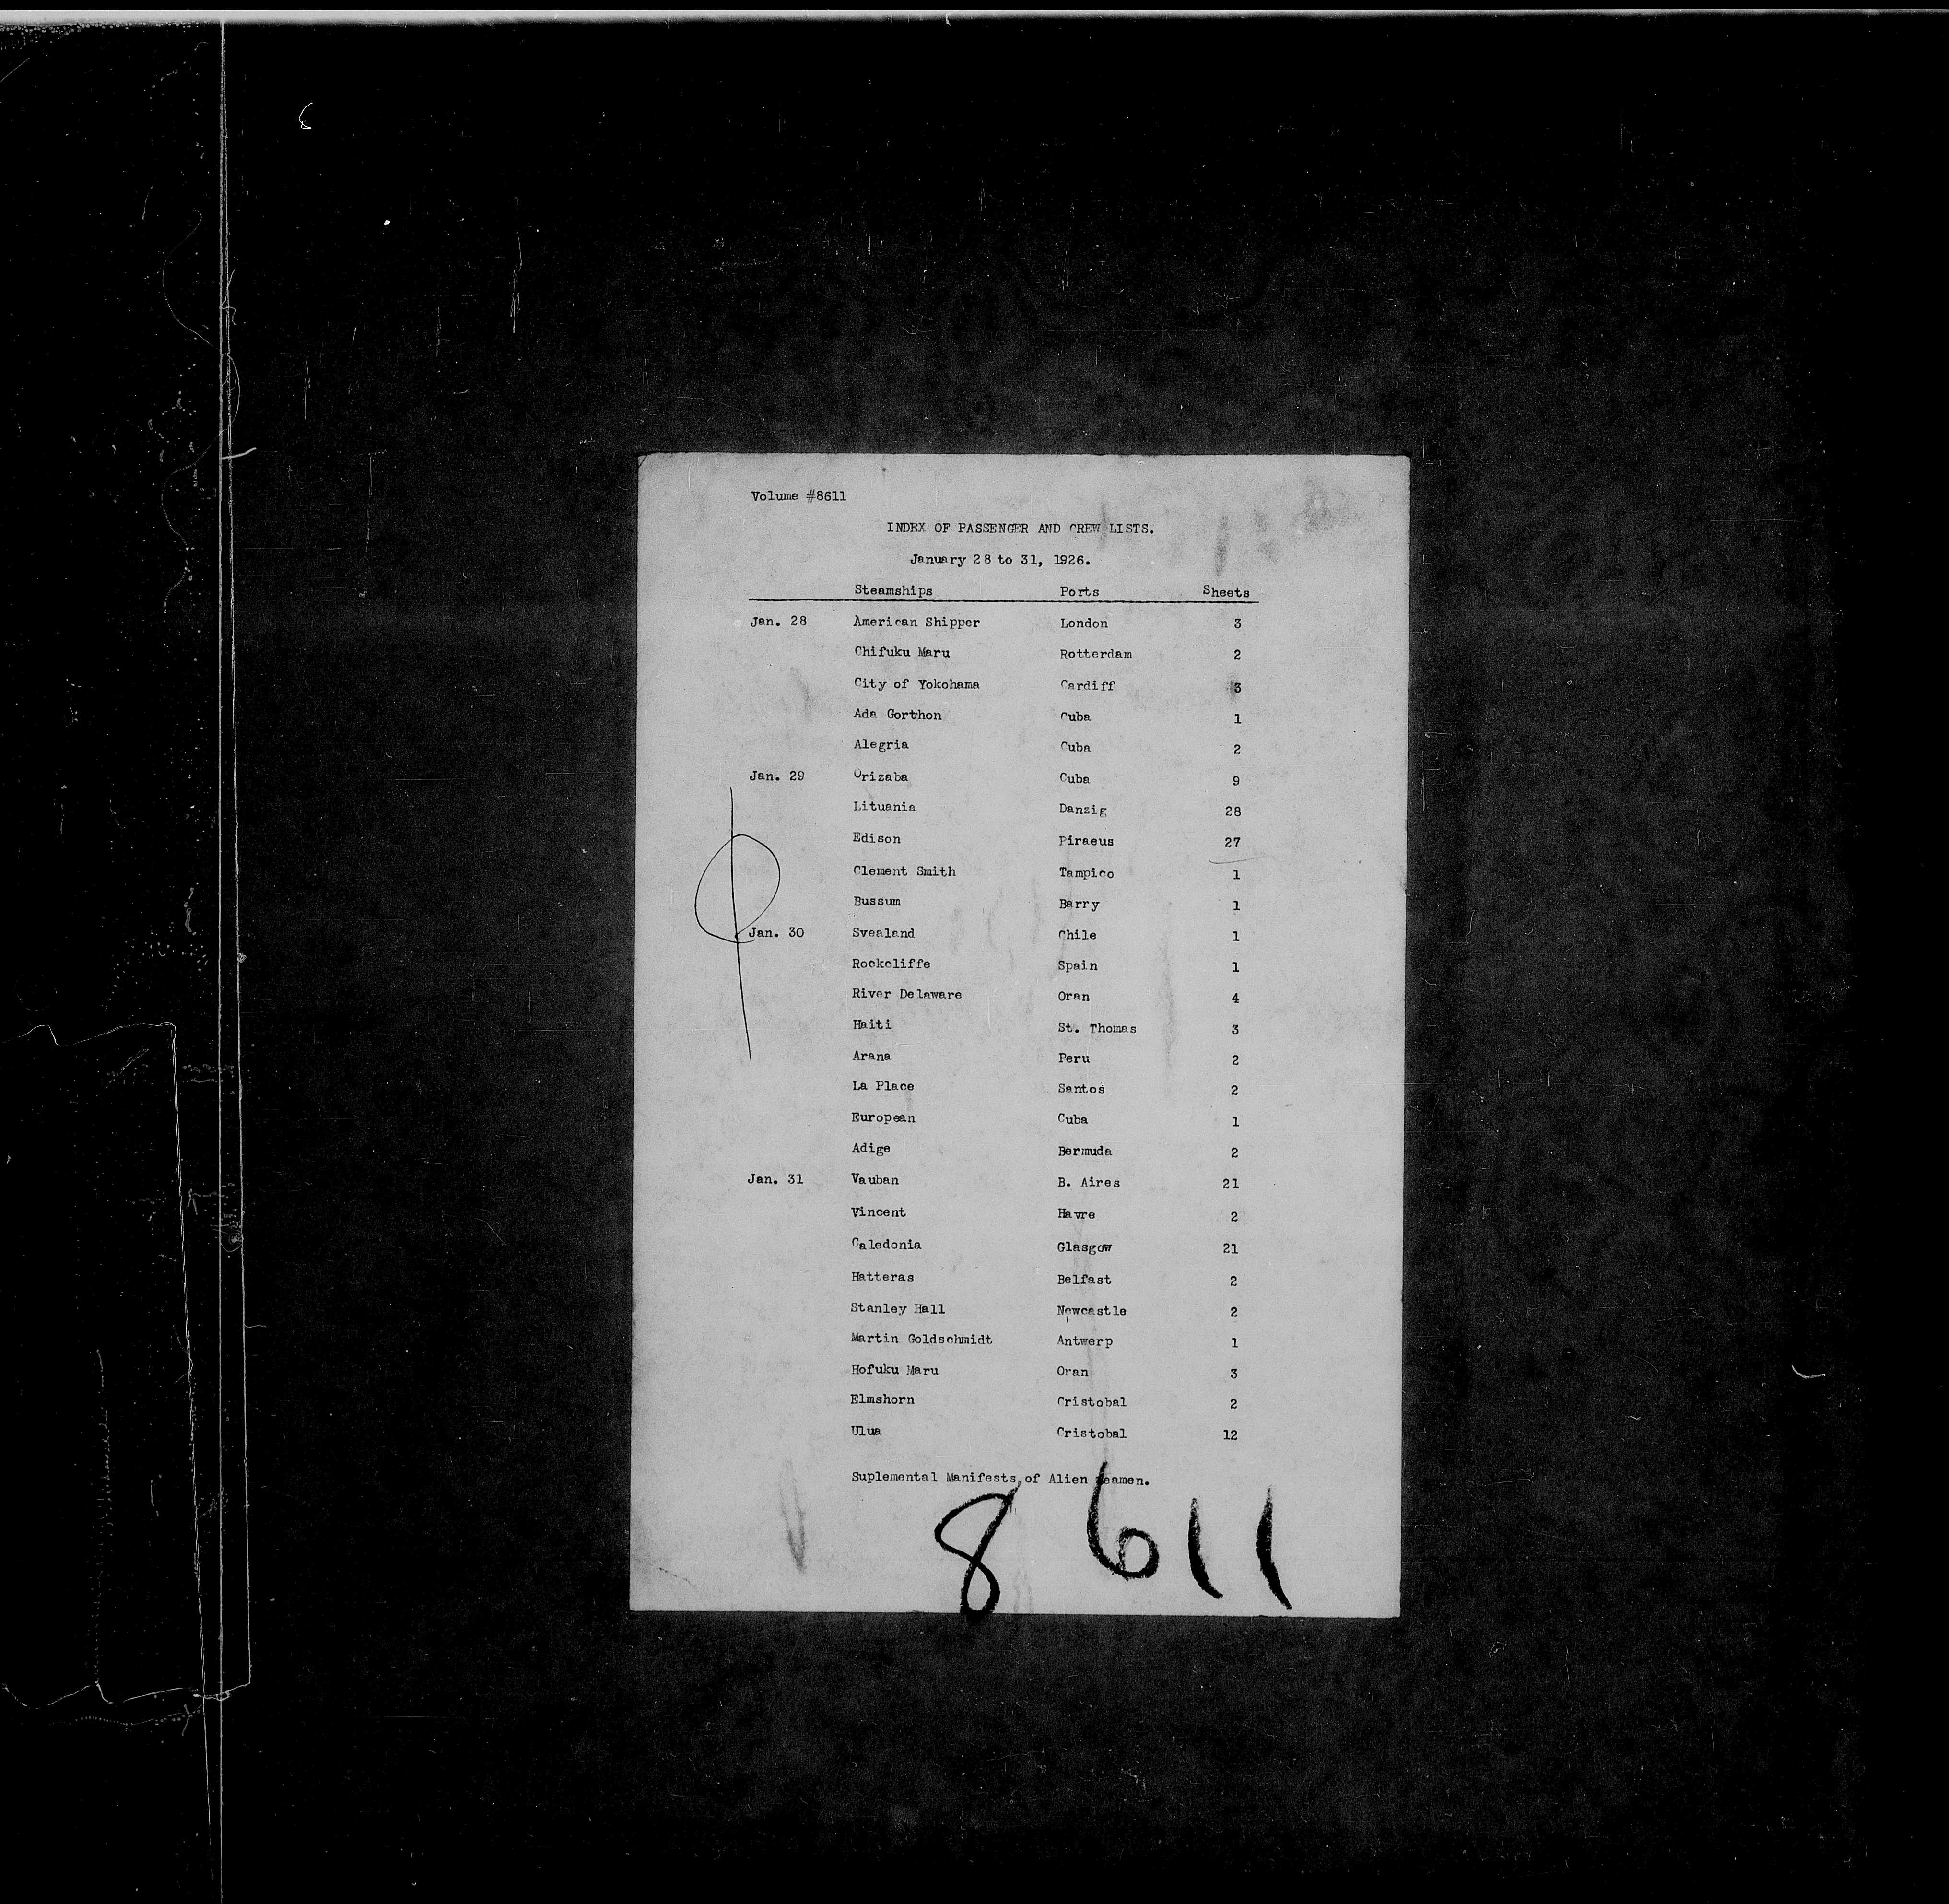 Volume #8611
INDEX OF PASSENGER AND CREW LISTS.
January 28 to 31, 1926.
Steamships Ports Sheets
Jan. 28 American Shipper London 3
Chifuku Maru Rotterdam 2
City of Yokohama Cardiff 3
Ada Gorthon Cuba 1
Alegria Cuba 2
Jan. 29 Orizaba Cuba 9
Lituania Danzig 28
Edison Piraeus 27
Clement Smith Tampico 1
Bussum Barry 1
Jan. 30 Svealand Chile 1
Rockcliffe Spain 1
River Delaware Oran 4
Haiti St. Thomas 3
Arana Peru 2
La Place Santos 2
European Cuba 1
Adige Bermuda 2
Jan. 31 Vauban B. Aires 21
Vincent Havre 2
Caledonia Glasgow 21
Hatteras Belfast 2
Stanley Hall Newcastle 2
Martin Goldschmidt Antwerp 1
Hofuku Maru Oran 3
Elmshorn Cristobal 2
Ulua Cristobal 12
Suplemental Manifests of Alien Seamen.
8611